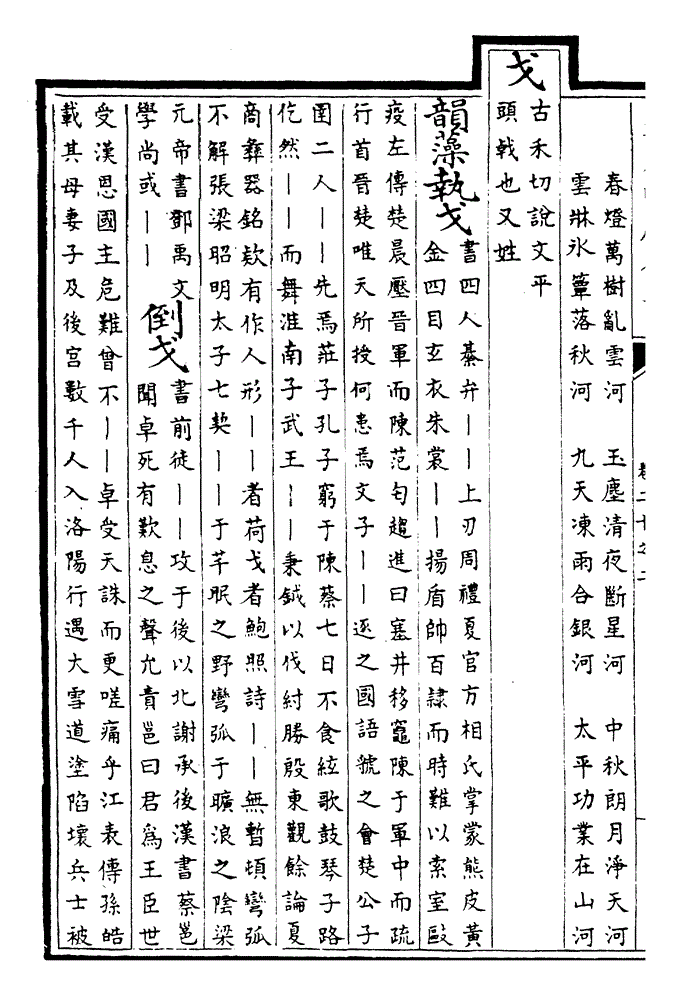 春燈萬樹亂雲河　玉塵清夜斷星河　中秋朗月淨天河
雲牀氷簟落秋河　九天凍雨合銀河　太平功業在山河
戈
古禾切說文平
頭戟也又姓
韻藻執戈
書四人綦弁｜｜上刃周禮夏官方相氏掌蒙熊皮黃
金四目玄衣朱裳｜｜揚盾帥百隸而時難以索室敺
疫左傳楚晨壓晉軍而陳范匄趨進曰塞井移竈陳于軍中而疏
行首晉楚唯天所授何患焉文子｜｜逐之國語虢之會楚公子
圉二人｜｜先焉莊子孔子窮于陳蔡七日不食絃歌鼓琴子路
仡然｜｜而舞淮南子武王｜｜秉鉞以伐紂勝殷東觀餘論夏
商彝器銘欵有作人形｜｜者荷戈者鮑照詩｜｜無暫頓彎弧
不解張梁昭明太子七契｜｜于芊眠之野彎弧于曠浪之陰梁
元帝書鄧禹文
學尚或｜｜
倒戈
書前徒｜｜攻于後以北謝承後漢書蔡邕
聞卓死有歎息之聲允責邕曰君爲王臣世
受漢恩國主危難曾不｜｜卓受天誅而更嗟痛乎江表傳孫皓
載其母妻子及後宮數千人入洛陽行遇大雪道塗陷壞兵士被